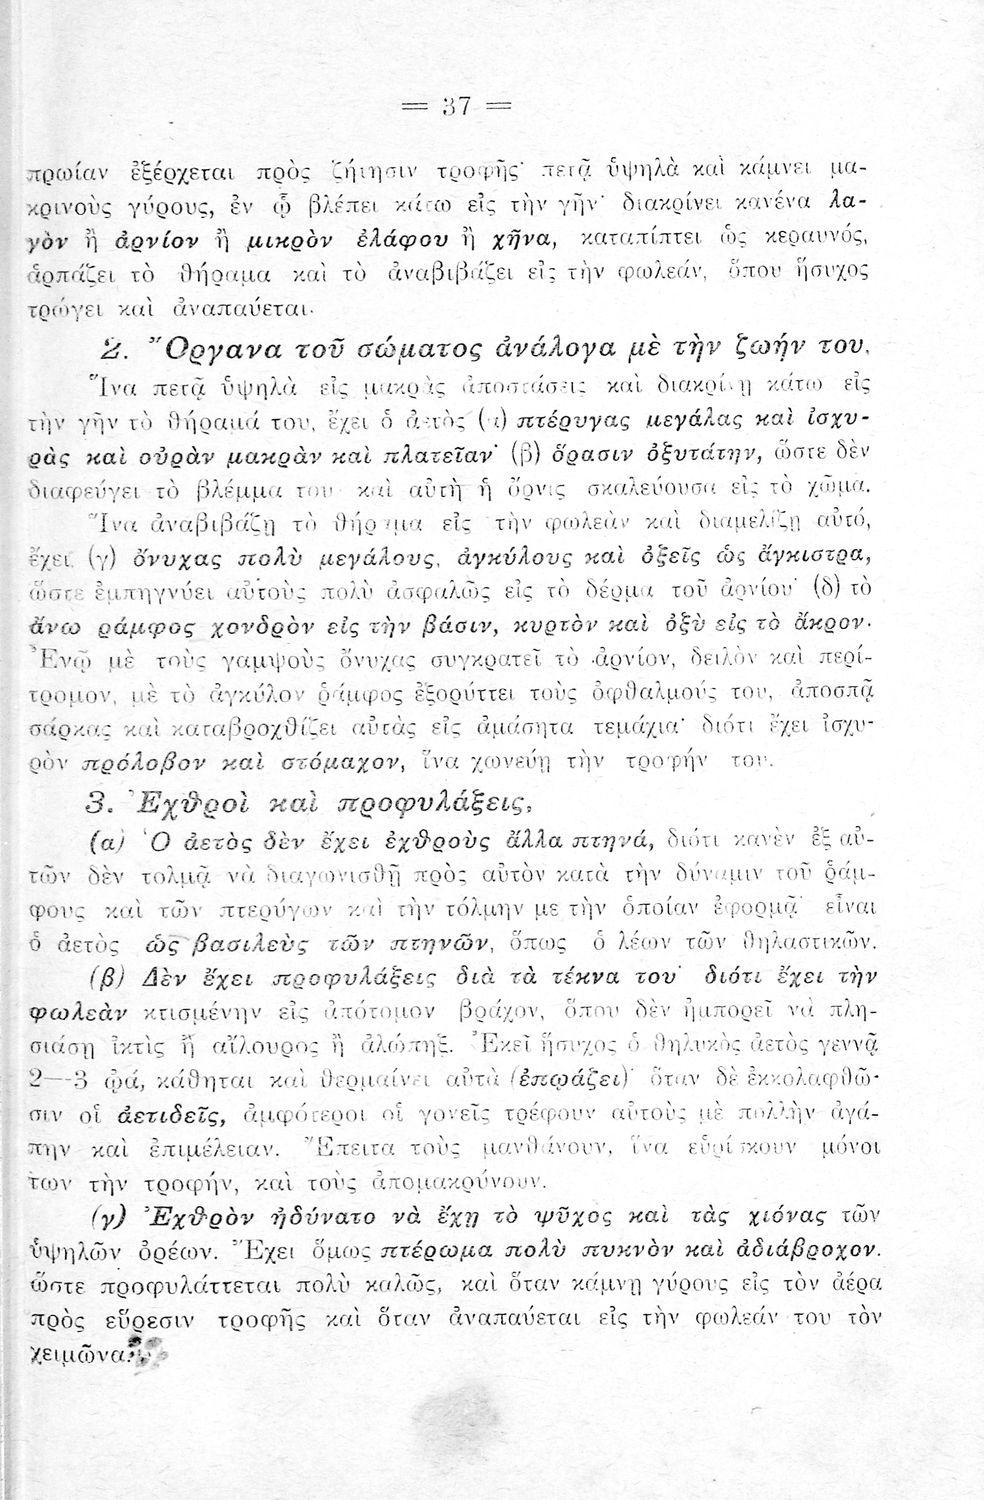 = 37 =
πρωίαν ἐξέρχεται πρὸς ζήτησιν τροφῆς· πετᾷ ὑψηλὰ καὶ κάμνει μα-
κρινοὺς γύρους, ἐν ᾧ βλέπει κάτω εἰς τὴν γῆν· διακρίνει κανένα λα-
γὸν ἢ ἀρνίον ἢ μικρὸν ἐλάφου ἢ χῆνα, καταπίπτει ὡς κεραυνός,
ἁρπάζει τὸ θήραμα καὶ τὸ ἀναβιβάζει εἰς τὴν φωλεάν, ὅπου ἥσυχος
τρώγει καὶ ἀναπαύεται.
2. Ὄργανα τοῦ σώματος ἀνάλογα μὲ τὴν ζωήν του.
Ἵνα πετᾷ ὑψηλὰ εἰς μακρὰς ἀποστάσεις καὶ διακρίνῃ κάτω εἰς
τὴν γῆν τὸ θήραμά του, ἔχει ὁ ἀετὸς (α) πτέρυγας μεγάλας καὶ ἰσχυ-
ρὰς καὶ οὐρὰν μακρὰν καὶ πλατεῖαν· (β) ὅρασιν ὀξυτάτην, ὥστε δὲν
διαφεύγει τὸ βλέμμα του καὶ αὐτὴ ἡ ὄρνις σκαλεύουσα εἰς τὸ χῶμα.
Ἵνα ἀναβιβάζῃ τὸ θήραμα εἰς τὴν φωλεὰν καὶ διαμελίζῃ αὐτό,
ἔχει (γ) ὄνυχας πολὺ μεγάλους, ἀγκύλους καὶ ὀξεῖς ὡς ἄγκιστρα,
ὥστε ἐμπηγνύει αὐτοὺς πολὺ ἀσφαλῶς εἰς τὸ δέρμα τοῦ ἀρνίου· (δ) τὸ
ἄνω ράμφος χονδρὸν εἰς τὴν βάσιν, κυρτὸν καὶ ὀξὺ εἰς τὸ ἄκρον.
Ἐνῷ μὲ τοὺς γαμψοὺς ὄνυχας συγκρατεῖ τὸ ἀρνίον, δειλὸν καὶ περί-
τρομον, μὲ τὸ ἀγκύλον ῥάμφος ἐξορύττει τοὺς ὀφθαλμούς του, ἀποσπᾷ
σάρκας καὶ καταβροχθίζει αὐτὰς εἰς ἀμάσητα τεμάχια· διότι ἔχει ἰσχυ-
ρὸν πρόλοβον καὶ στόμαχον, ἵνα χωνεύῃ τὴν τροφήν του.
3. Ἐχθροὶ καὶ προφυλάξεις.
(α) Ὁ ἀετὸς δὲν ἔχει ἐχθροὺς ἄλλα πτηνά, διότι κανὲν ἐξ αὐ-
τῶν δὲν τολμᾷ νὰ διαγωνισθῇ πρὸς αὐτὸν κατὰ τὴν δύναμιν τοῦ ῥάμ-
φους καὶ τῶν πτερύγων καὶ τὴν τόλμην με τὴν ὁποίαν ἐφορμᾷ· εἶναι
ὁ ἀετὸς ὡς βασιλεὺς τῶν πτηνῶν, ὅπως ὁ λέων τῶν θηλαστικῶν.
(β) Δὲν ἔχει προφυλάξεις διὰ τὰ τέκνα του· διότι ἔχει τὴν
φωλεὰν κτισμένην εἰς ἀπότομον βράχον, ὅπου δὲν ἠμπορεῖ νὰ πλη-
σιάσῃ ἰκτὶς ἢ αἴλουρος ἢ ἀλώπηξ. Ἐκεῖ ἥσυχος ὁ θηλυκὸς ἀετὸς γεννᾷ
2—3 ᾠά, κάθηται καὶ θερμαίνει αὐτὰ (ἐπῳάζει)· ὅταν δὲ ἐκκολαφθῶ-
σιν οἱ ἀετιδεῖς, ἀμφότεροι οἱ γονεῖς τρέφουν αὐτοὺς μὲ πολλὴν ἀγά-
πην καὶ ἐπιμέλειαν. Ἔπειτα τοὺς μανθάνουν, ἵνα εὑρίσκουν μόνοι
των τὴν τροφήν, καὶ τοὺς ἀπομακρύνουν.
(γ) Ἐχθρὸν ἠδύνατο νὰ ἔχῃ τὸ ψῦχος καὶ τὰς χιόνας τῶν
ὑψηλῶν ὀρέων. Ἔχει ὅμως πτέρωμα πολὺ πυκνὸν καὶ ἀδιάβροχον.
ὥστε προφυλάττεται πολὺ καλῶς, καὶ ὅταν κάμνῃ γύρους εἰς τὸν ἀέρα
πρὸς εὕρεσιν τροφῆς καὶ ὅταν ἀναπαύεται εἰς τὴν φωλεάν του τὸν
χειμῶνα.